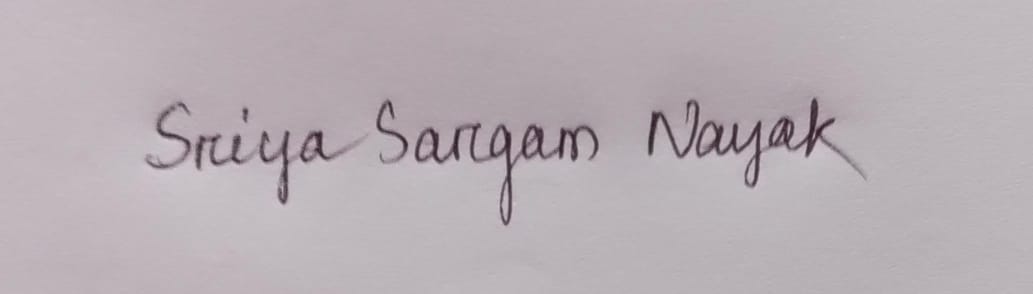 Sriya Sargam Nayak